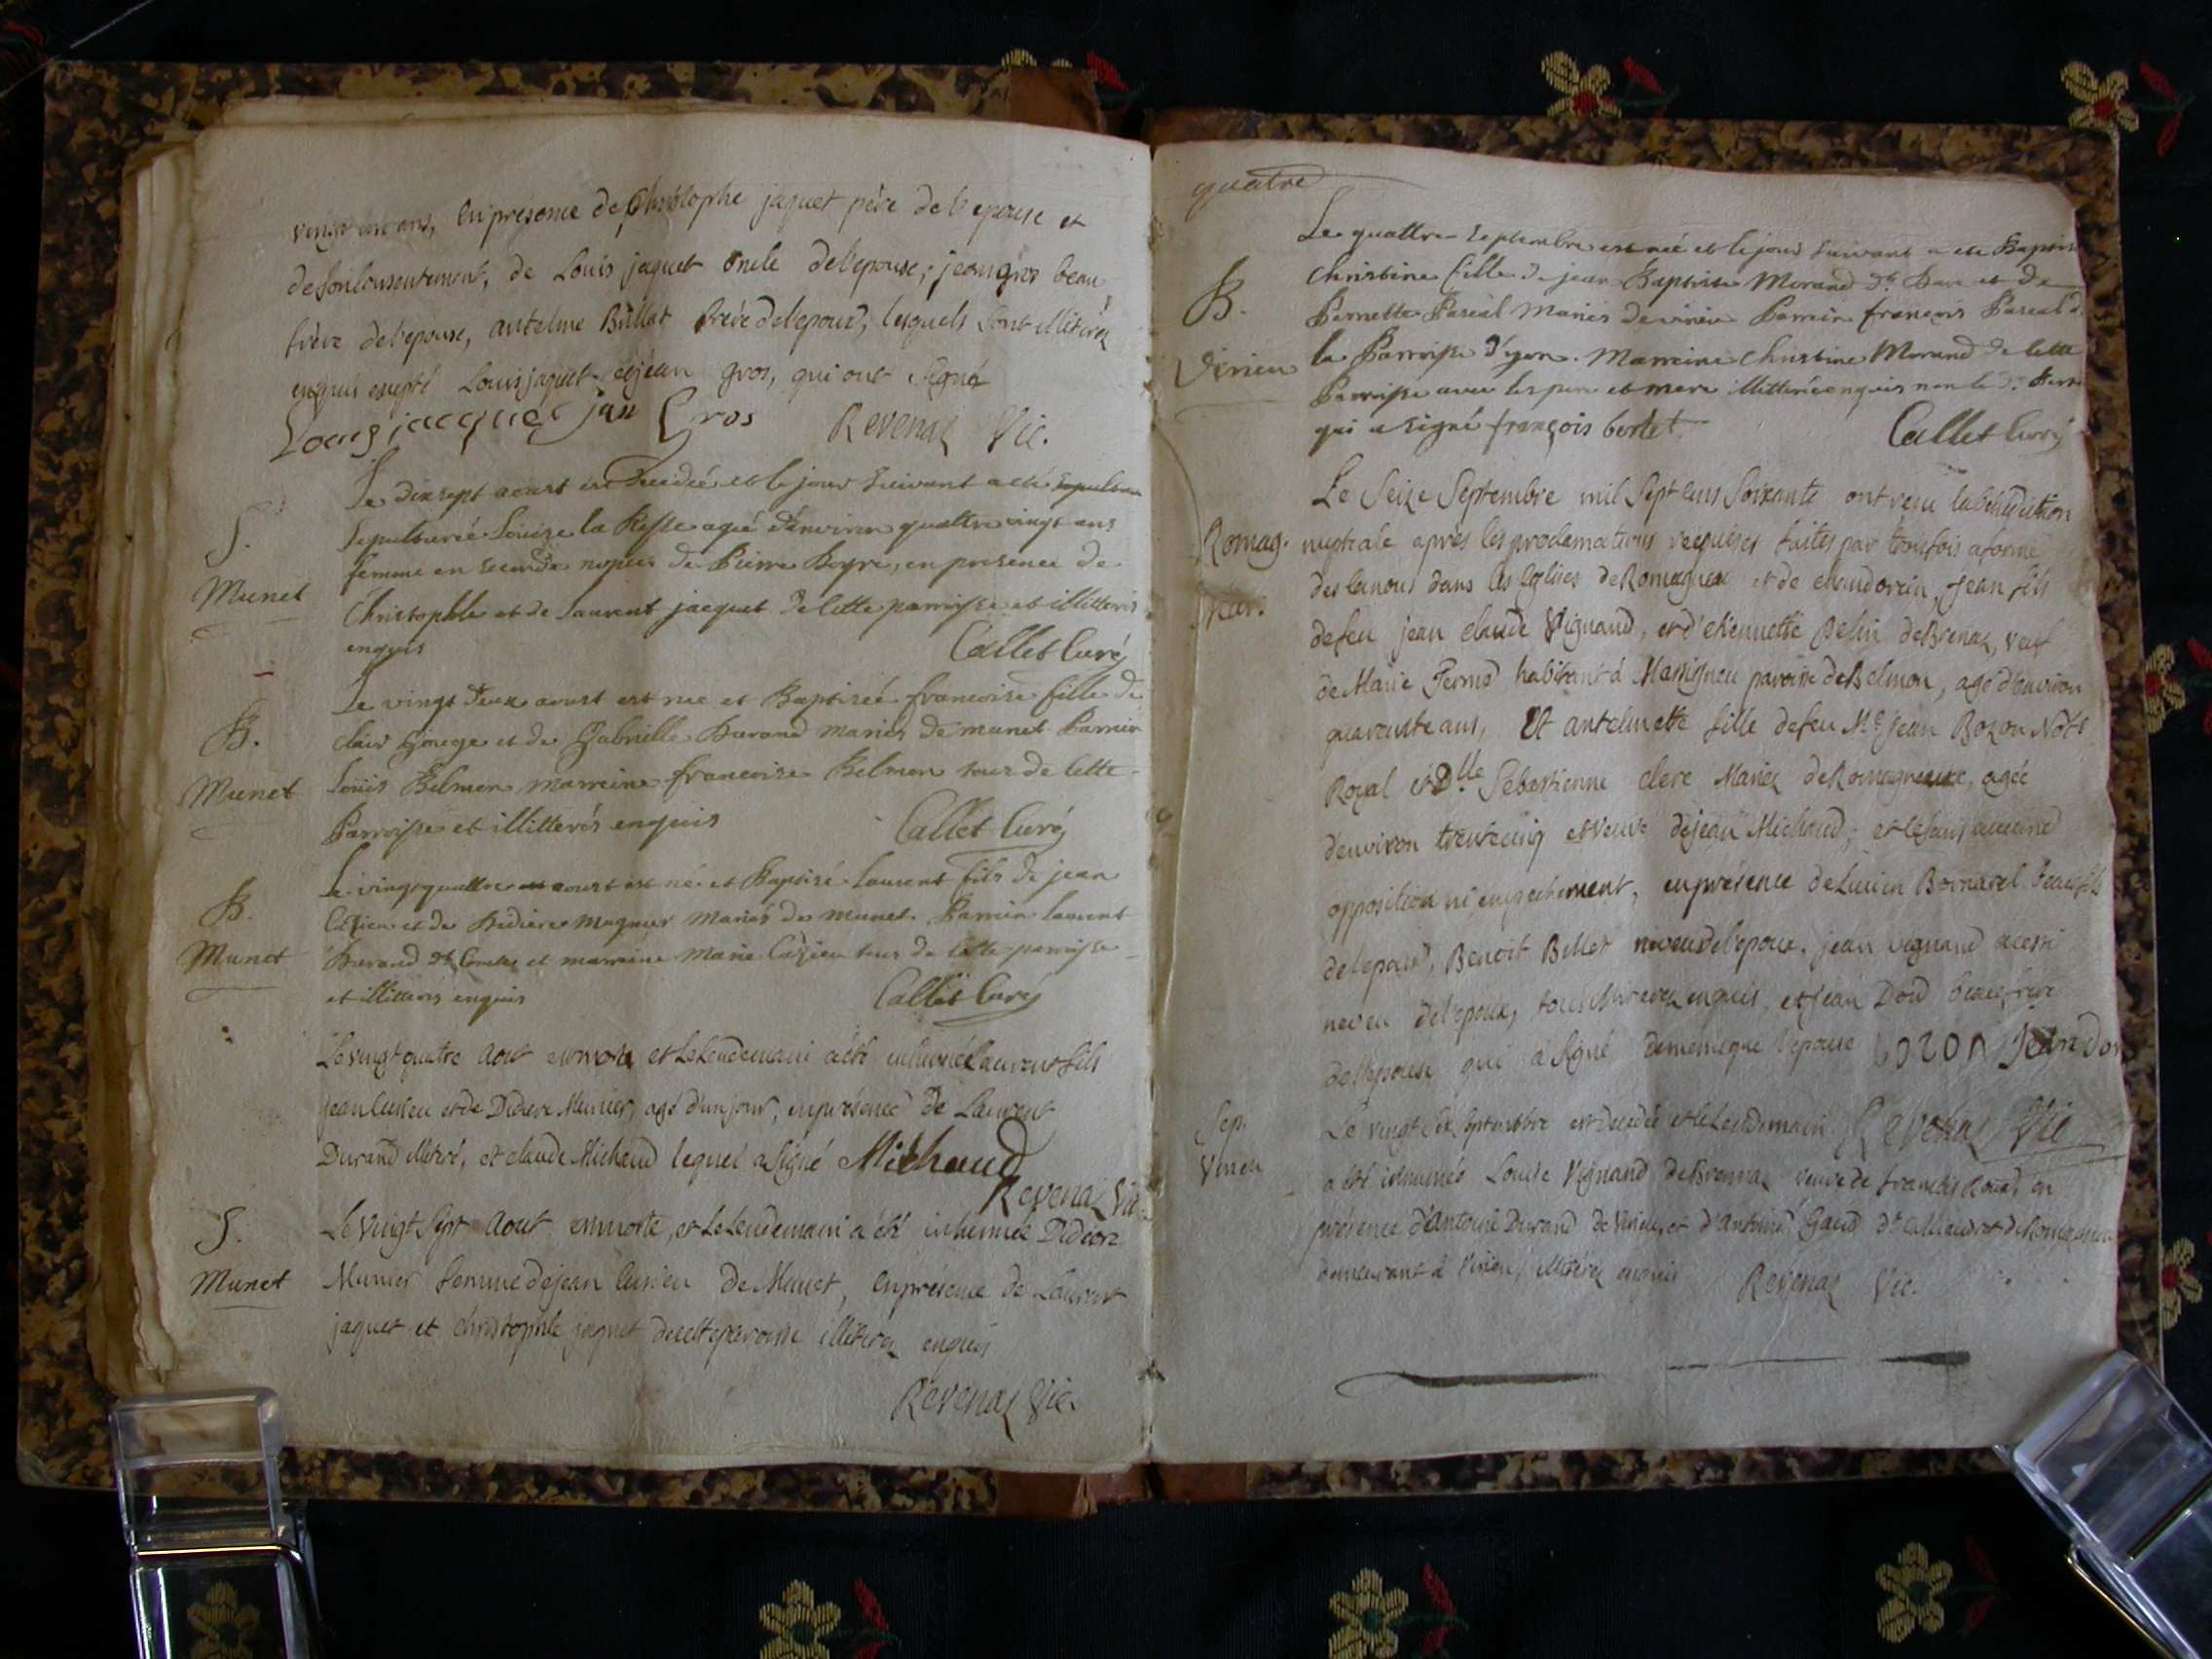 vingt un ans, en presence de Christophe jaquet père de l'epouse et
de son consentement, de Louis jaquet oncle de l'epouse, jean gros beau
frère de l'epouse, antelme Billat frère de l'epoux, lesquels sont illiterez
enquis excepté Louis jaquet et jean gros, qui ont signé
Louis jacquet jan Gros Revenaz Vic.
Le dixsept aoust est decedée et le jour suivant a eté
S. sepulturée Louise la agée d'environ quattre vingt ans
femme en seconde nopces de Pierre Boyre, en presence de
Munet Christophle et de laurent jacquet de cette parroisse et illitterés
enquis Callet Curé
Le vingt deux aoust est nee et Baptisée francoise fille de
B. clair Gouge et de Gabrielle Durand mariés de munet Parrain
Munet Louis Belmon, marreine francoise Belmon tous de cette
Parroisse et illitterés enquis Callet Curé
Le vingt quattre aoust est né et Baptisé laurent fils de jean
B. Cusieu et de Didiere mugnier mariés de munet. Parrain laurent
Munet Durand dt et marreine Marie Cusieu tous de cette parroisse
et illitterés enquis Callet Curé
Le vingt quatre aout est mort et le Lendemain a été inhumé Laurent fils
jean Cusieu et de Didiere Munier, agé d'un jour, en présence de Laurent
Durand illitéré, et claude Michaud lequel a signé Michaud
Revenaz Vic.
S. Le vingt sept aout est morte, et le Lendemain a été inhumée Didiere
Munet Munier femme de jean Cusieu de Munet, en présence de Laurent
jaquet et christophle jaquet de cette paroisse illiterez enquis
Revenaz Vic.
quatre
Le quattre septembre est née et le jour suivant a ete Baptis
B. Christine fille de jean Baptiste Morand dt Ban et de
Pernette Pascal Mariés de virieu Parrain françois Pascal d
Virieu la Parroisse d'yon. Marreine Christine Morand de cette
Parroisse avec les pere et mere illitterés enquis non le d.
qui a signé françois bertet Callet Curé
Le Seize Septembre mil sept cens soixante ont reçu la bénédiction
Romag. nuptiale après les proclamations requises faites par trois fois a forme
Mar. des canons dans les Eglises de Romagneu et de chandorein, jean fils
de feu jean claude Vignand, et d'etiennette Belin de Brenaz, veuf
de Marie Ferrand habitant à Massigneu paroisse de Belmon, agé d'environ
quarante ans, Et antelmette fille de feu Me jean Bozon Note
Royal et Dlle Sebastienne clerc Mariez de Romagneux, agée
d'environ trente cinq et veuve de jean Michaud; et ce sans aucune
opposition ni empechement, en présence de Lucien Bornarel beau fils
de l'epoux, Benoit Billet neveu de l'epoux, jean vignand aussi
neveu de l'epoux, tous illiterez enquis, et jean Dord beau frère
de l'epouse qui a signé de meme que l'epouse bozon Jean dor
Revenaz Vic
Sep. Le vingt six septembre est decedée et le Lendemain
Virieu a été inhumée Louise Vignand de Brennaz veuve de francois Roux, en
présence d'Antoine Durand de Virieu, et d'antoine Gaud dt de Romagneu
demeurant à Virieu, illiterez enquis Revenaz Vic.